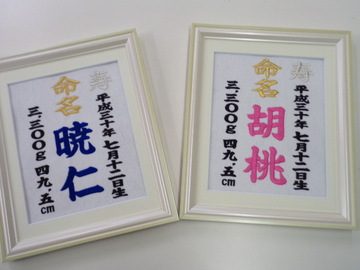 寿
平成三十年 七月十二日生
命名
暁仁
三、三〇〇g 四九.五cm
寿
平成三十年 七月十二日生
命名
胡桃
三、三〇〇g 四九.五cm